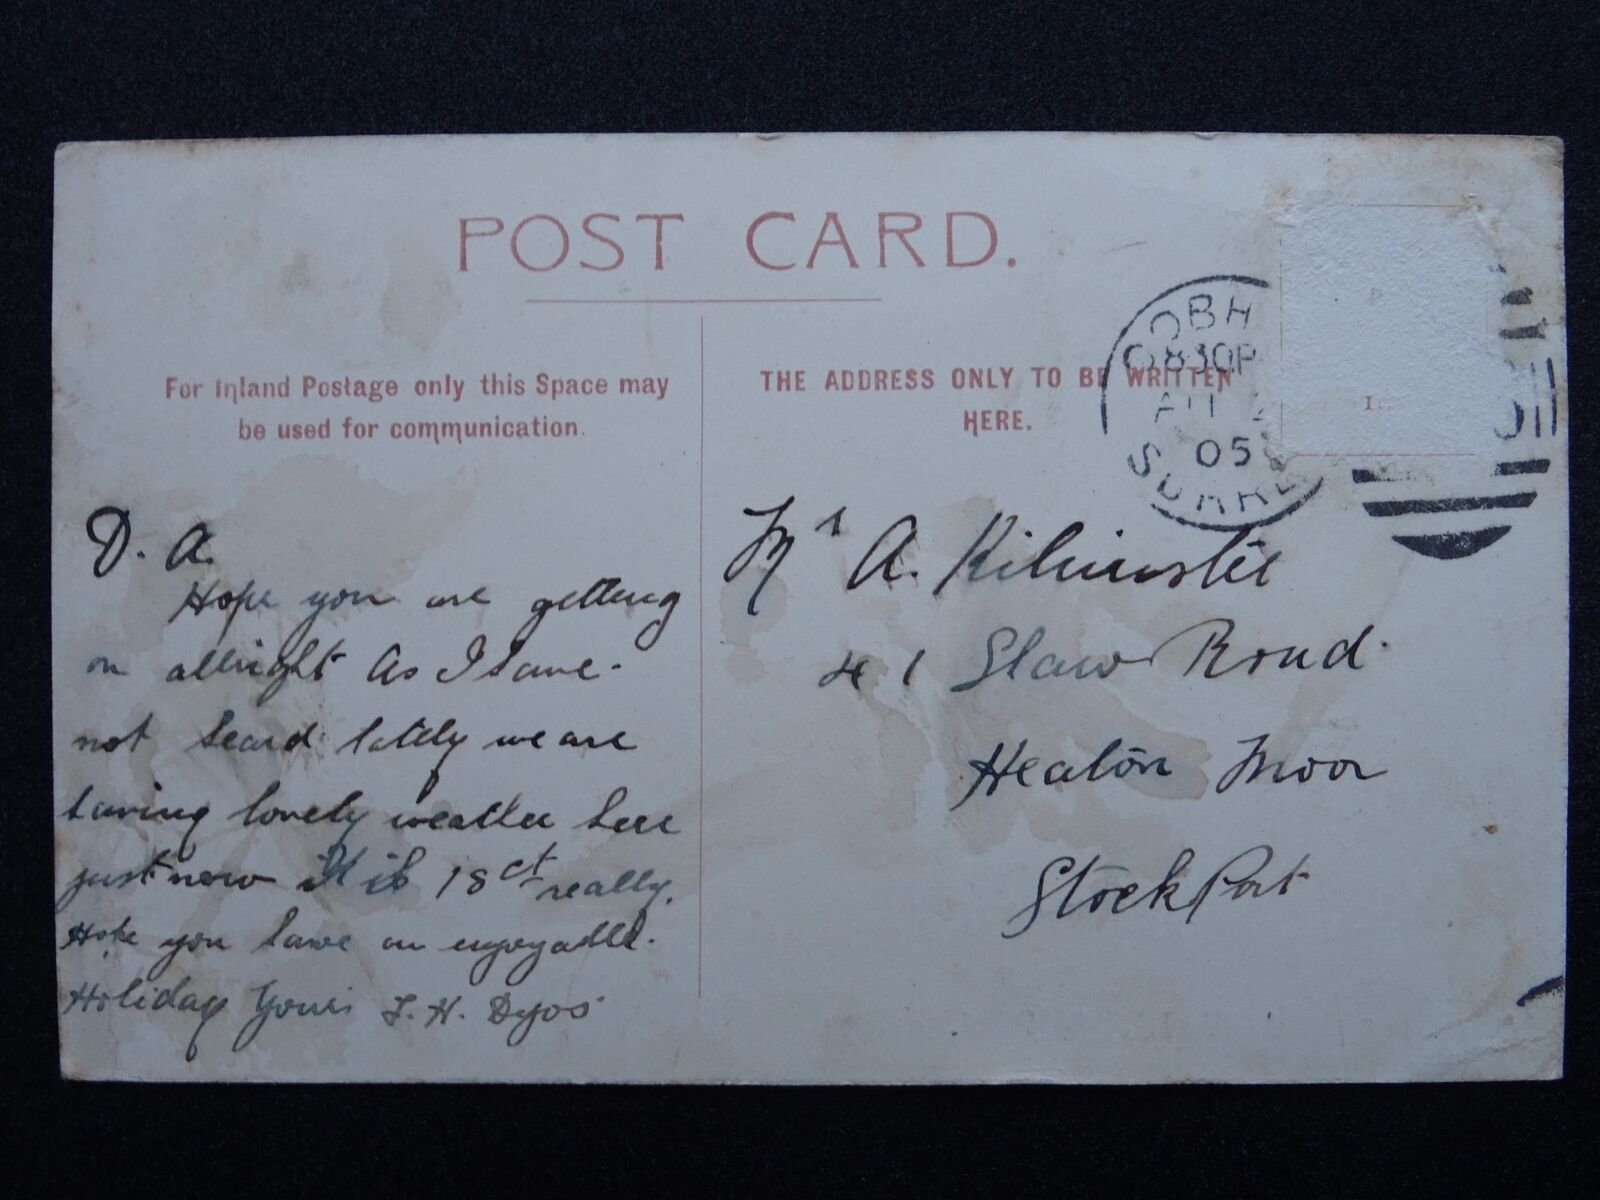 POST CARD.
For Inland Postage only this Space may
be used for communication.
THE ADDRESS ONLY TO BE WRITTEN
HERE.
COBH
830P
AU
05
SURRE
D. A.
Hope you are getting
on allright As I have
not heard lately we are
having lovely weather here
just now it is 18 ct really.
Hope you have an enjoyable
Holiday Yours J. H. Dyos
Mr A. Kilminster
41 Shaw Road
Heaton Moor
StockPort